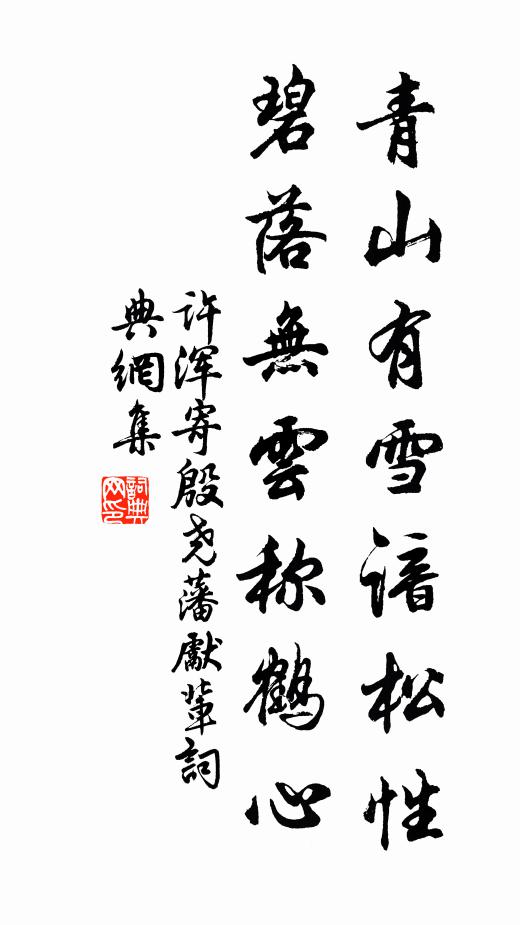 青山有雪諳松性
碧落無雲称鶴心
許渾寄殷尧藩獻輩詞
典網集
詞典网印